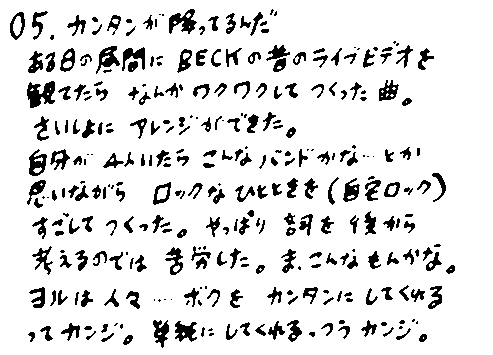 05. カンタンが降ってるんだ
ある日の昼間に BECKの昔のライブビデオを
観てたら なんかワクワクして つくった曲。
さいしょに アレンジができた。
自分が 4人いたら こんなバンドかな…とか
思いながら ロックなひとときを(自宅ロック)
すごしてつくった。やっぱり 詞を後から
考えるのでは 苦労した。ま、こんなもんかな。
ヨルは人々…ボクを カンタンにしてくれる
ってカンジ。単純にしてくれるっつうカンジ。